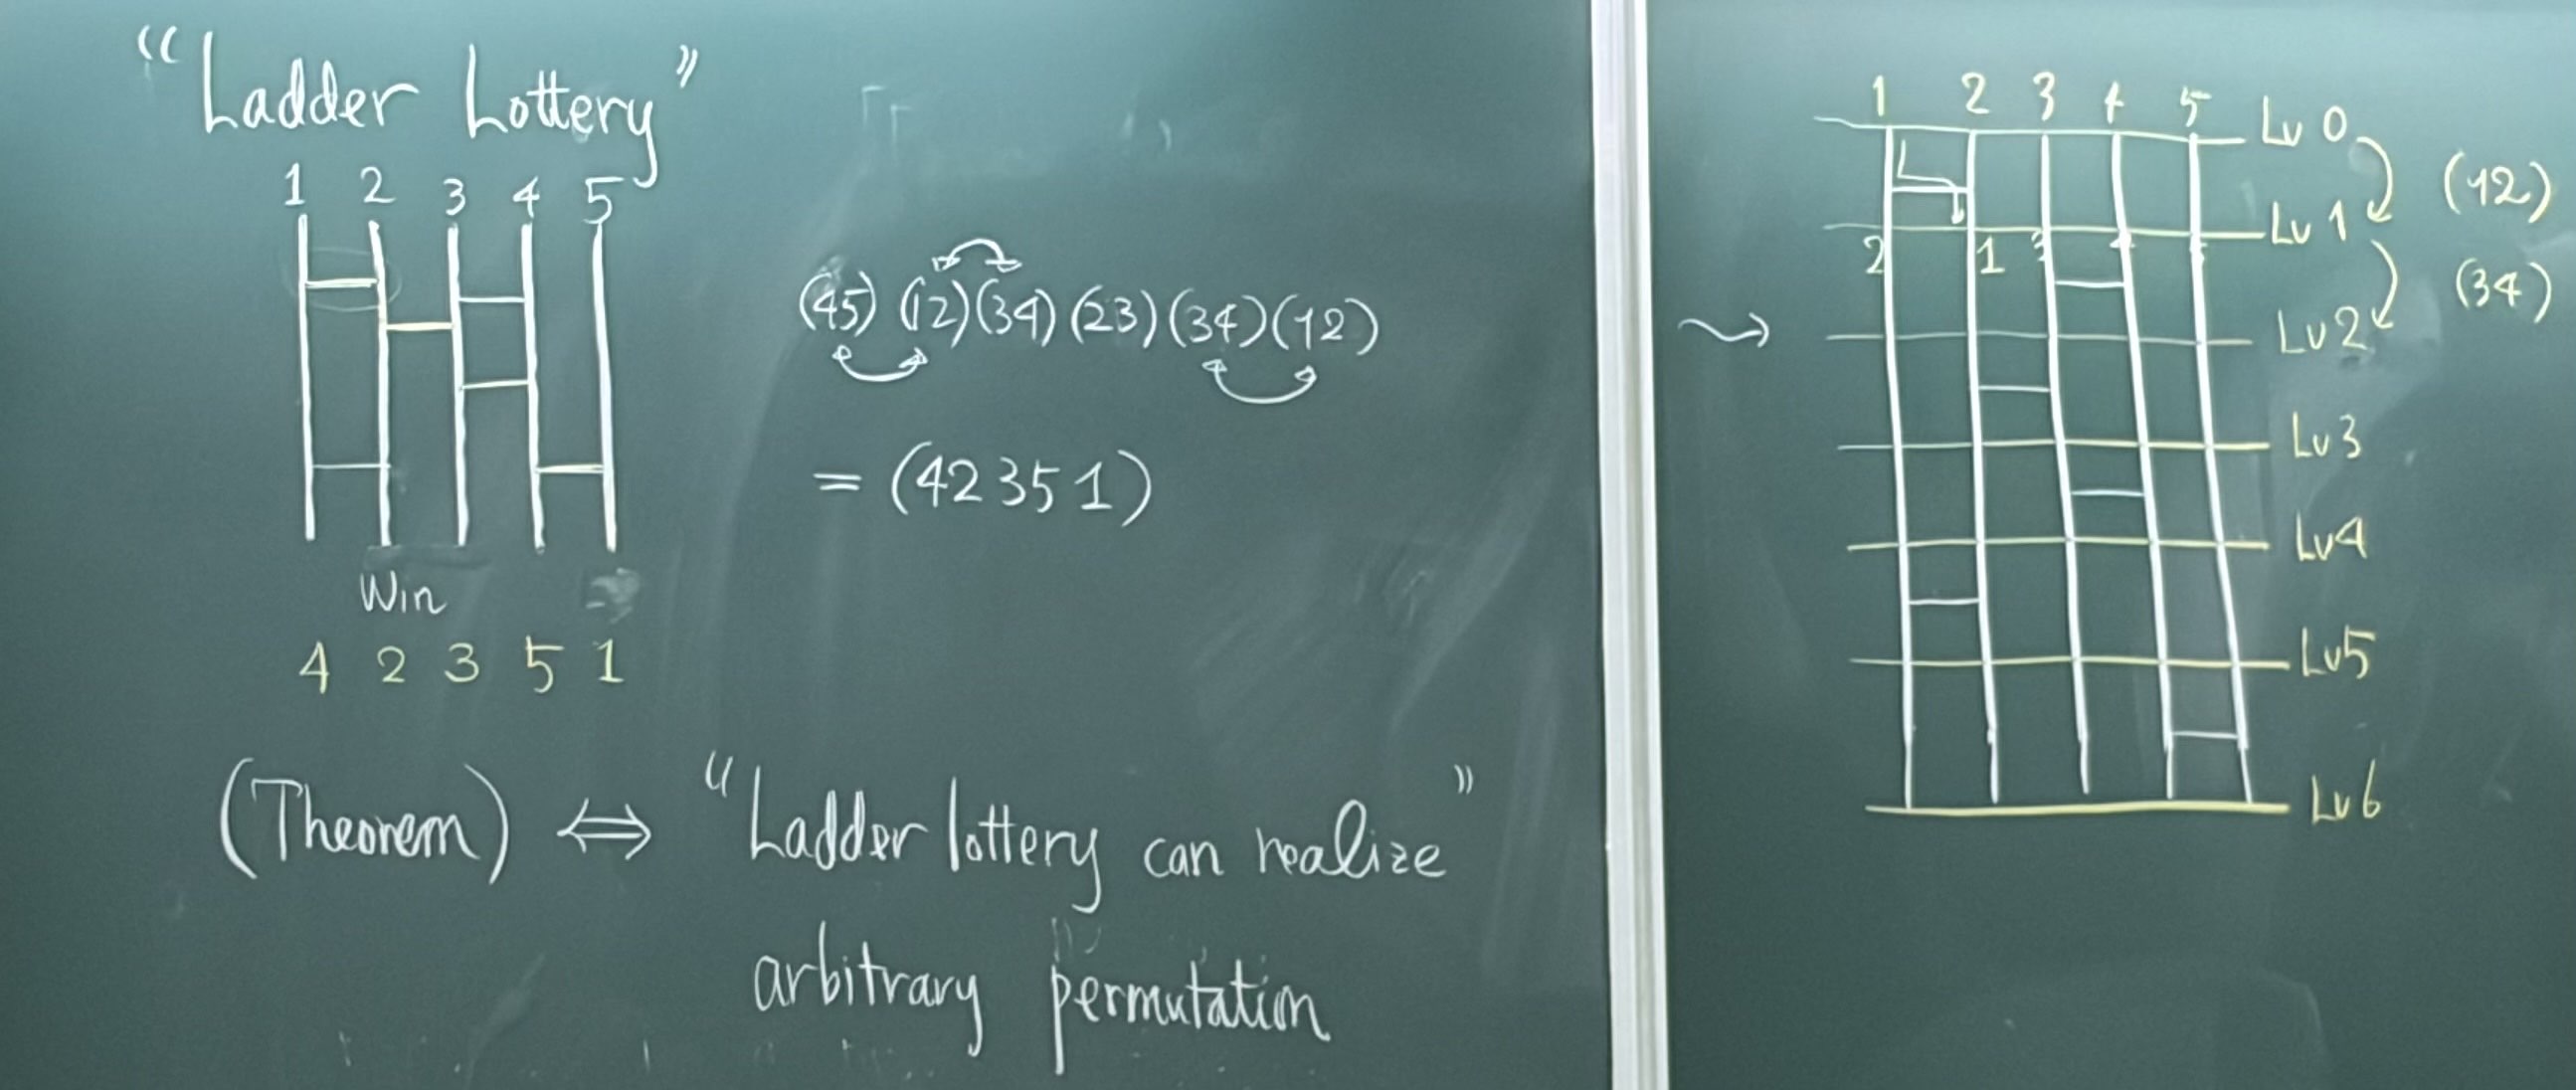 “Ladder Lottery”
1 2 3 4 5
Win
4 2 3 5 1
(45)(12)(34)(23)(34)(12)
= (42351)
(Theorem) ⇔ “Ladder lottery can realize”
arbitrary permutation
1 2 3 4 5
Lv 0
(12)
Lv 1
2 1 3 4 5
(34)
Lv2
Lv3
Lv4
Lv5
Lv6